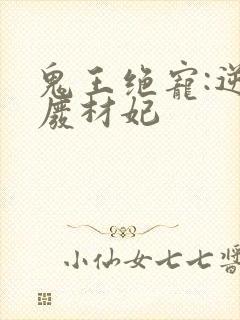 鬼王绝宠:逆
廢材妃
小仙女七七醬